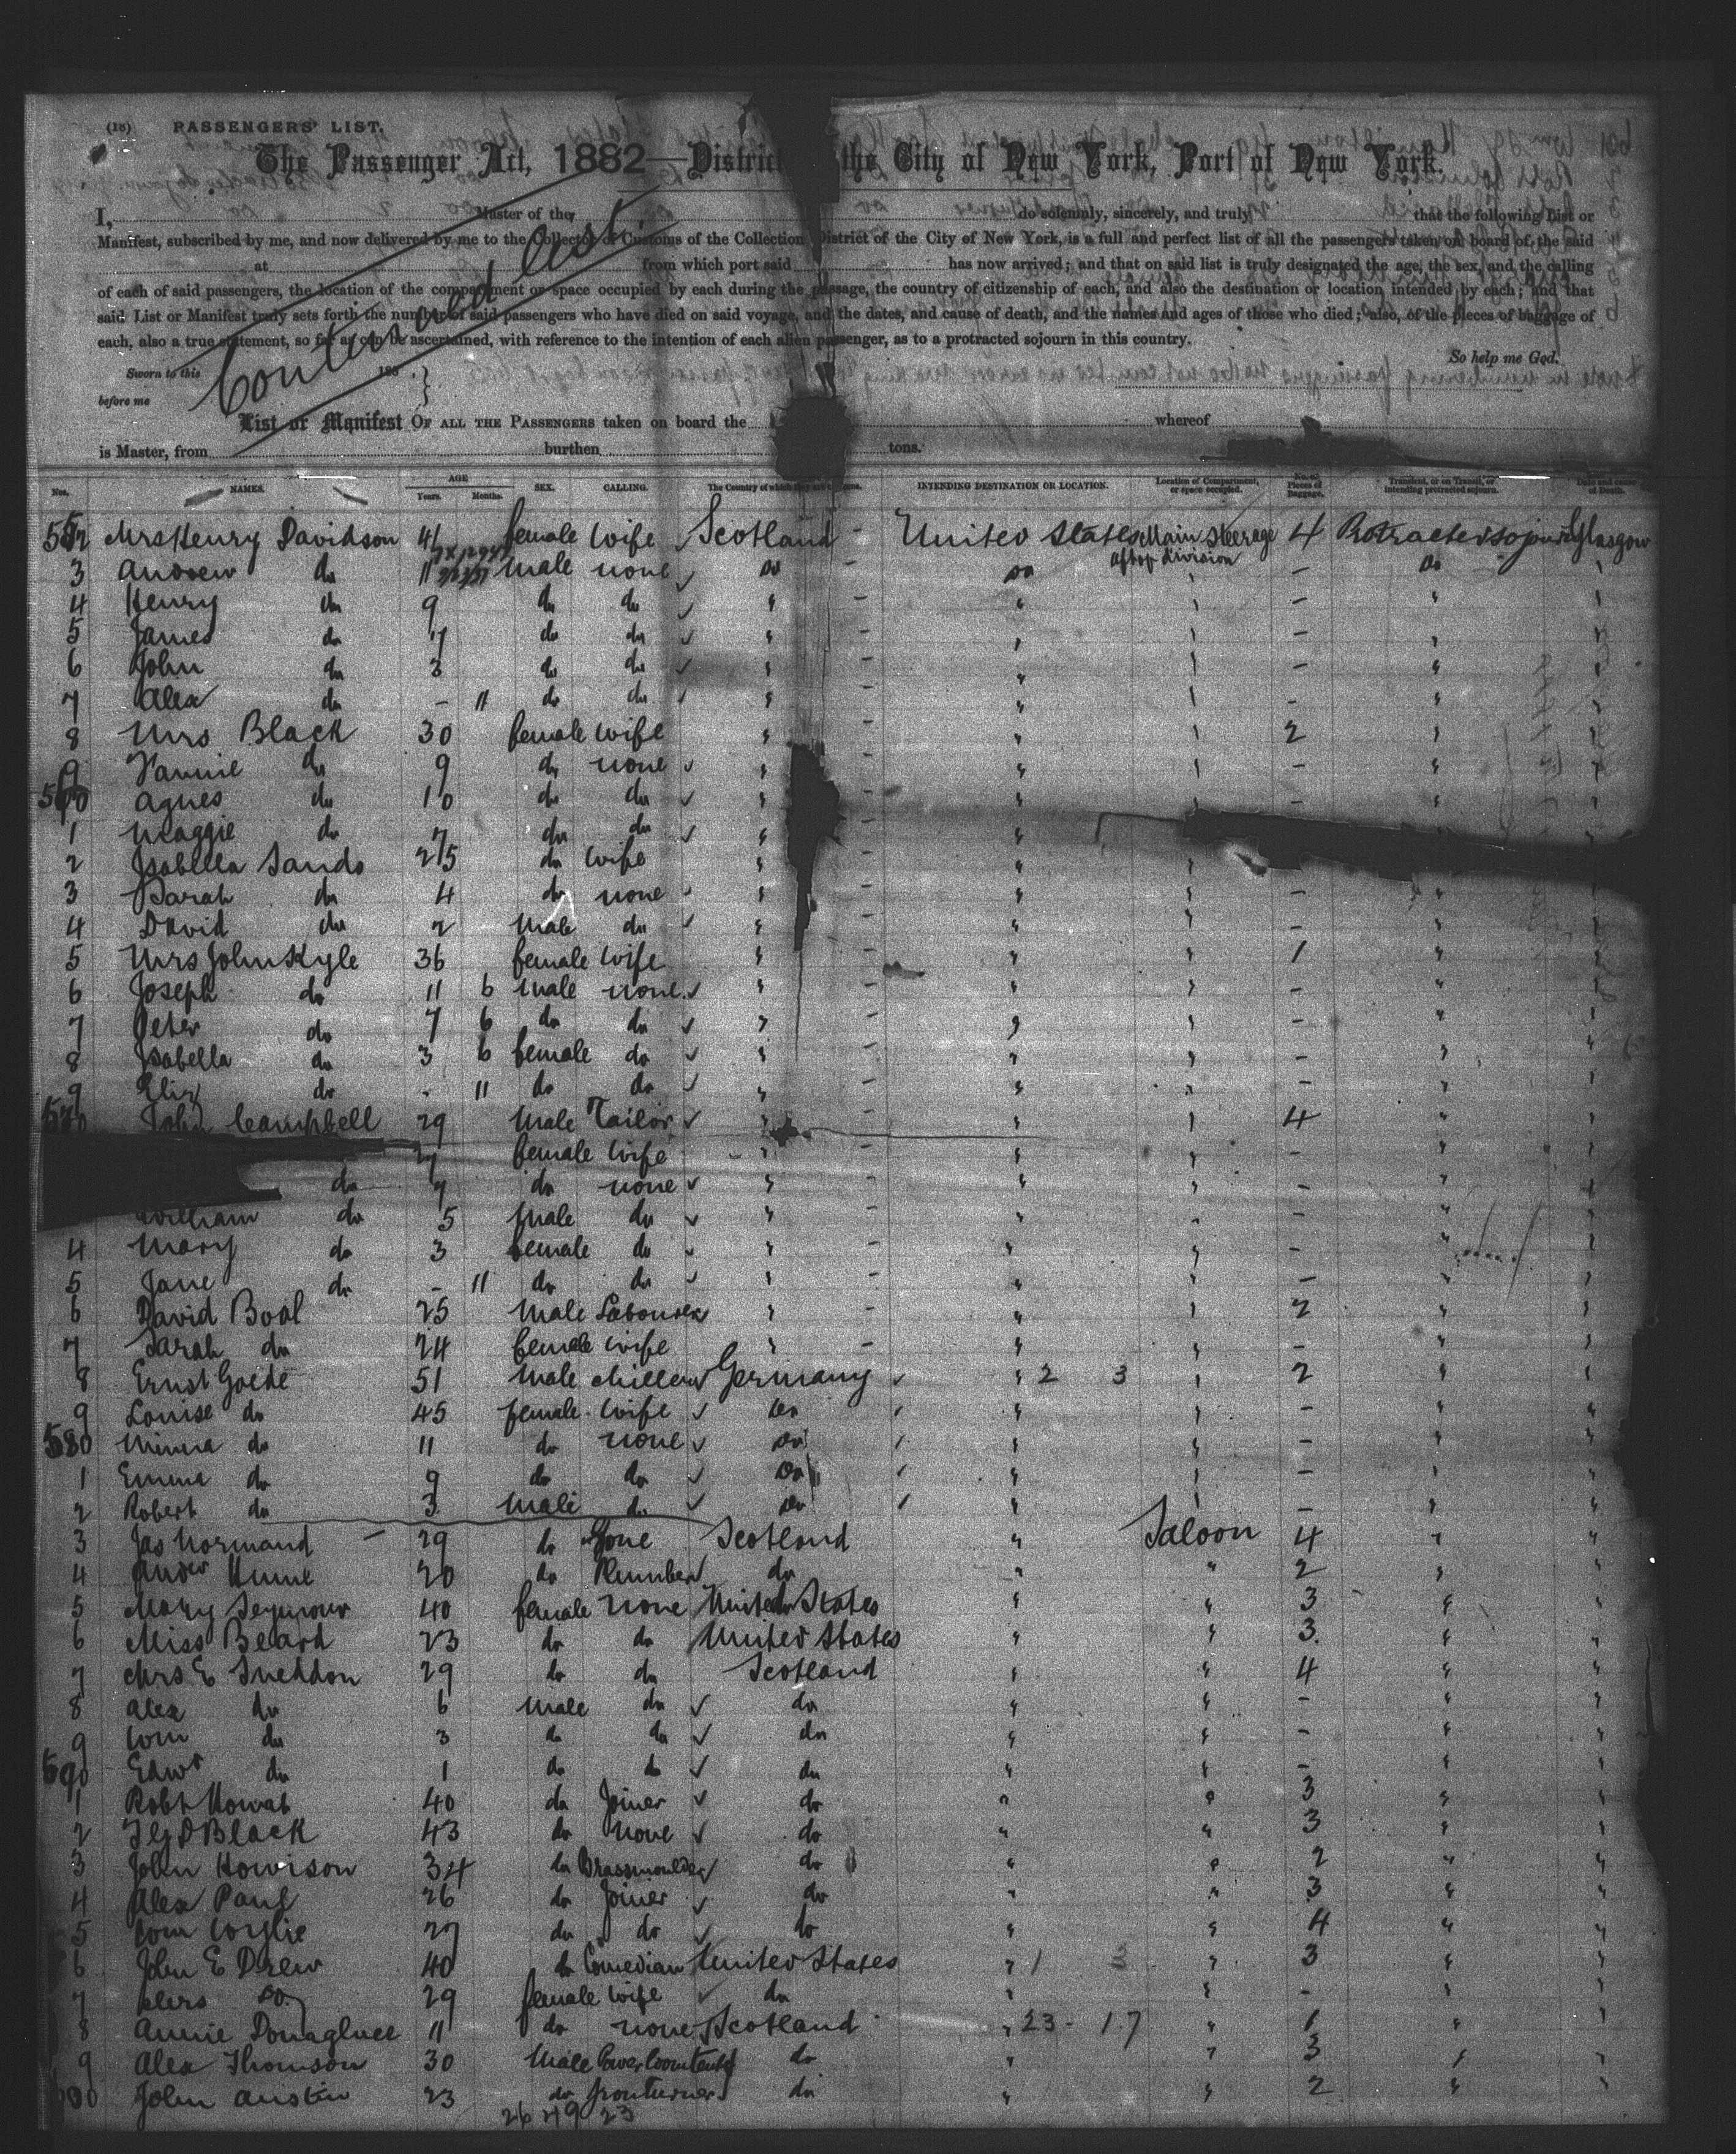 (18) PASSENGERS' LIST.
The Passenger Act, 1882—District the City of New York, Port of New York.
I, Master of the do solemnly, sincerely, and truly that the following List or
Manifest, subscribed by me, and now delivered by me to the Collector of Customs of the Collection District of the City of New York, is a full and perfect list of all the passengers taken on board of the said
at from which port said has now arrived; and that on said list is truly designated the age, the sex, and the calling
of each of said passengers, the location of the compartment or space occupied by each during the passage, the country of citizenship of each, and also the destination or location intended by each; and that
said List or Manifest truly sets forth the number of said passengers who have died on said voyage, and the dates, and cause of death, and the names and ages of those who died; also, of the pieces of baggage of
each, also a true statement, so far as can be ascertained, with reference to the intention of each alien passenger, as to a protracted sojourn in this country.
So help me God.
Continued List.
Sworn to this 188
before me
List or Manifest OF ALL THE PASSENGERS taken on board the whereof
is Master, from burthen tons.
Nos. NAMES. AGE Years. Months. SEX. CALLING. The Country of which they are INTENDING DESTINATION OR LOCATION. Location of Compartment, or space occupied. No. of Pieces of Baggage. Transient, or on Transit, or intending protracted sojourn. Date and cause of Death.
552 Mrs Henry Davidson 41 female wife Scotland - United States Main Steerage 4 Protracted sojourn Glasgow
after division
3 Andrew do 11 male none do - do - do "
4 Henry do 9 do do " - " " - " "
5 James do 7 do do " - " " - " "
6 John do 3 do do " - " " - " "
7 Alex do - 11 do do " - " " - " "
8 Mrs Black 30 female wife " - " " 2 " "
9 Fannie do 9 do none " - " " - " "
560 Agnes do 10 do do " - " " - " "
1 Maggie do 7 do do " " " "
2 Isabella Sands 25 do wife " - " " "
3 Sarah do 4 do none " - " " - " "
4 David do 2 male do " - " " - " "
5 Mrs John Kyle 36 female wife " - " " 1 " "
6 Joseph do 11 6 male none " - " " - " "
7 Peter do 7 6 do do " - " " - " "
8 Isabella do 3 6 female do " - " " - " "
9 Eliz do - 11 do do " - " " - " "
570 John Campbell 29 male Tailor " - " " 4 " "
female wife " - " " - " "
do 7 do none " - " " - " "
William do 5 male do " - " " - " "
4 Mary do 3 female do " - " " - " "
5 Jane do - 11 do do " - " " - " "
6 David Boal 25 male Labourer " - " " 2 " "
7 Sarah do 24 female wife " - " " - " "
8 Ernst Goede 51 male Miller Germany " 2 3 " 2 " "
9 Louise do 45 female wife do " " - " "
580 Minna do 11 do none do " " - " "
1 Emma do 9 do do do " " - " "
2 Robert do 3 male do do " " - " "
3 Jas Normand 29 do none Scotland " Saloon 4 " "
4 Andw Hume 20 do Plumber do " " 2 " "
5 Mary Seymour 40 female none United States " " 3 " "
6 Miss Beard 23 do do United States " " 3 " "
7 Mrs E Sneddon 29 do do Scotland " " 4 " "
8 Alex do 6 male do do " " - " "
9 Wm do 3 do do do " " - " "
590 Edwd do 1 do do do " " - " "
1 Robt Mowat 40 do Joiner do " " 3 " "
2 Black 43 do none do " " 3 " "
3 John Howison 34 do Brassmoulder do " " 2 " "
4 Alex Paul 26 do Joiner do " " 3 " "
5 Wm Wylie 27 do do do " " 4 " "
6 John E Drew 40 do Comedian United States " 1 3 " 3 " "
7 Mrs do 29 female wife do " " - " "
8 Annie 11 do none Scotland " 23 - 17 " 1 " "
9 Alex Thomson 30 male Powerloomtenter do " " 3 " "
600 John Austin 23 do Ironturner do " " 2 " "
26 29 23